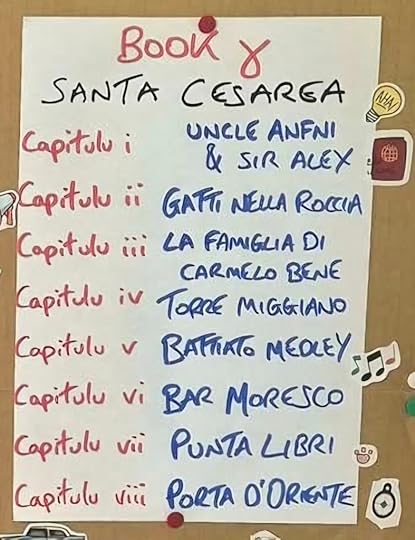 BOOK γ
SANTA CESAREA
Capitulu i UNCLE ANFNI
& SIR ALEX
Capitulu ii GATTI NELLA ROCCIA
Capitulu iii LA FAMIGLIA DI
CARMELO BENE
Capitulu iv TORRE MIGGIANO
Capitulu v BATTIATO MEDLEY
Capitulu vi BAR MORESCO
Capitulu vii PUNTA LIBRI
Capitulu viii PORTA D'ORIENTE